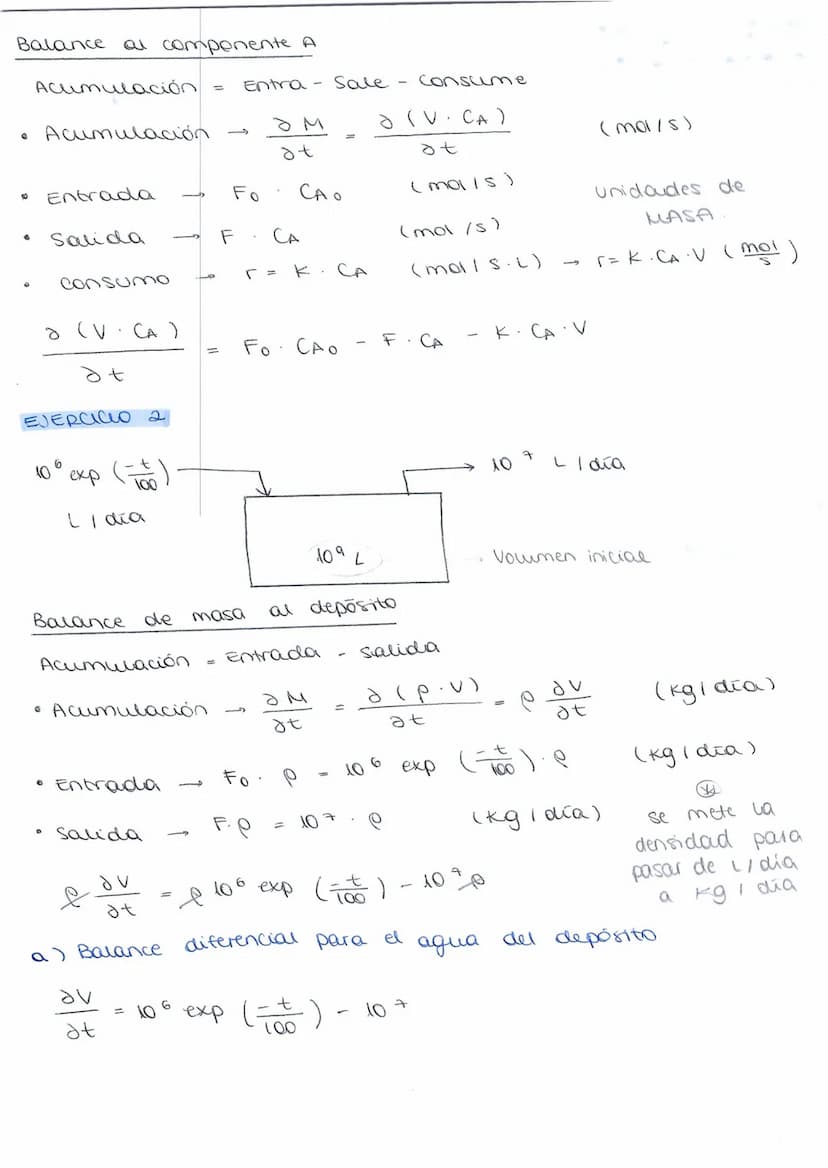 Balance al componente A
Acumulación = Entra - Sale - Consume
• Acumulación → ∂M/∂t = ∂(V · CA)/∂t (mol/s)
• Entrada → F0 · CA0 (mol/s) unidades de
MASA.
• Salida → F · CA (mol/s)
• consumo → r = K · CA (mol/s·L) → r = K·CA·V (mol/s)
∂(V · CA)/∂t = F0 · CA0 - F · CA - K · CA · V
EJERCICIO 2
10^6 exp (-t/100) → 10^7 L/día
L/día
10^9 L Volumen inicial
Balance de masa al depósito
Acumulación = Entrada - Salida
• Acumulación → ∂M/∂t = ∂(ρ·V)/∂t = ρ ∂V/∂t (kg/día)
• Entrada → F0 · ρ = 10^6 exp (-t/100) · ρ (kg/día)
• Salida → F·ρ = 10^7 · ρ (kg/día)
se mete la
densidad para
pasar de L/día
a kg/día
ρ ∂V/∂t = ρ 10^6 exp (-t/100) - 10^7 ρ
a) Balance diferencial para el agua del depósito
∂V/∂t = 10^6 exp (-t/100) - 10^7